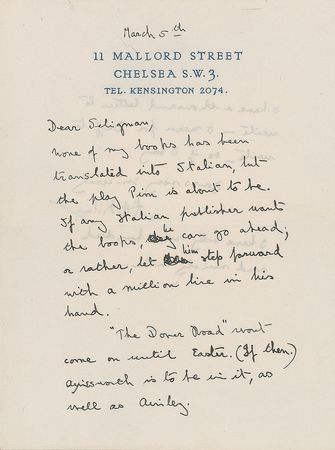 March 5th
11 MALLORD STREET
CHELSEA S.W.3.
TEL. KENSINGTON 2074.
Dear Seligman,
none of my books has been
translated into Italian, but
the play Pim is about to be.
If any Italian publisher wants
the books, he can go ahead;
or rather, let him step forward
with a million lire in his
hand.
"The Dover Road" won't
come on until Easter. (If then.)
Aynesworth is to be in it, as
well as Ainley.